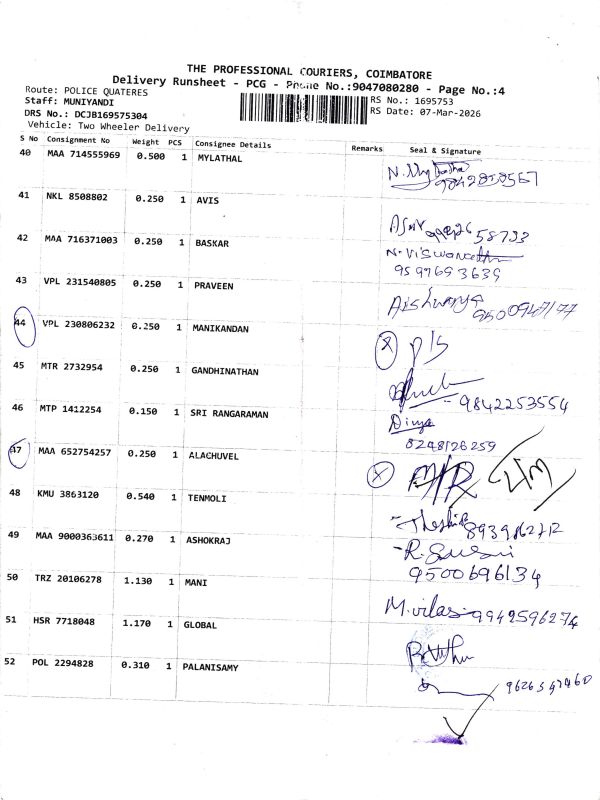 THE PROFESSIONAL COURIERS, COIMBATORE
Delivery Runsheet - PCG - Phone No.:9047080280 - Page No.:4
Route: POLICE QUATERES
Staff: MUNIYANDI
RS No.: 1695753
DRS No.: DCJB169575304
RS Date: 07-Mar-2026
Vehicle: Two Wheeler Delivery
S No Consignment No Weight PCS Consignee Details Remarks Seal & Signature
40 MAA 714555969 0.500 1 MYLATHAL
41 NKL 8508802 0.250 1 AVIS
42 MAA 716371003 0.250 1 BASKAR
N. Viswanathan
9597693639
43 VPL 231540805 0.250 1 PRAVEEN
Aishwarya
44 VPL 230806232 0.250 1 MANIKANDAN
P/S
45 MTR 2732954 0.250 1 GANDHINATHAN
9842253554
46 MTP 1412254 0.150 1 SRI RANGARAMAN
Divya
8248126259
47 MAA 652754257 0.250 1 ALAGHUVEL
48 KMU 3863120 0.540 1 TENMOLI
49 MAA 9000363611 0.270 1 ASHOKRAJ
9500696134
50 TRZ 20106278 1.130 1 MANI
M. vilas 9942596274
51 HSR 7718048 1.170 1 GLOBAL
52 POL 2294828 0.310 1 PALANISAMY